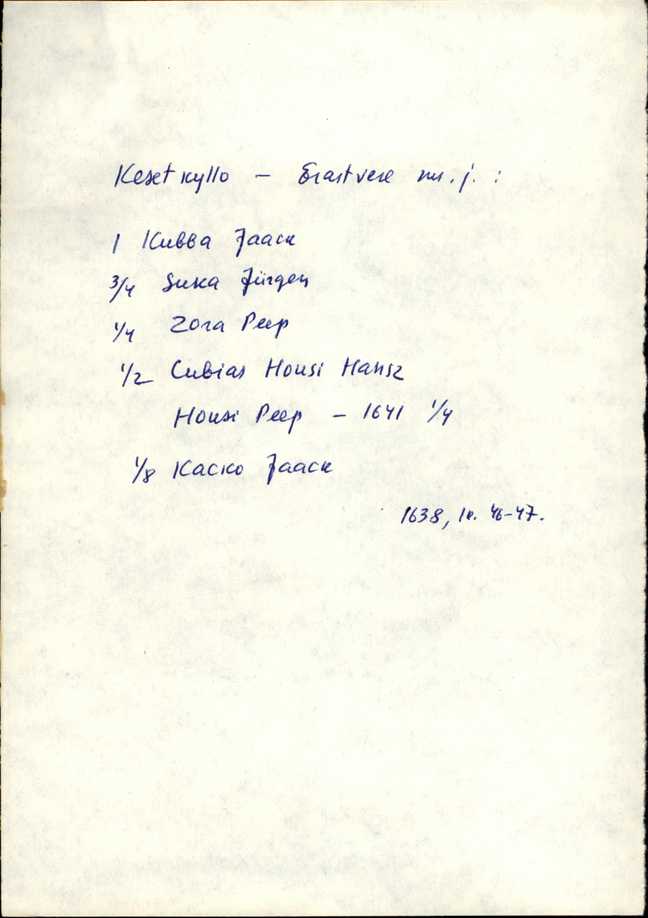 Keset kyllo — Erastvere ms. j. :
1 Kubba Jaack
3/4 Suka Jürgen
1/4 Zora Peep
1/2 Cubias Housi Hansz
Housi Peep — 1641 1/4
1/8 Kacko Jaack
1638, lk. 46-47.